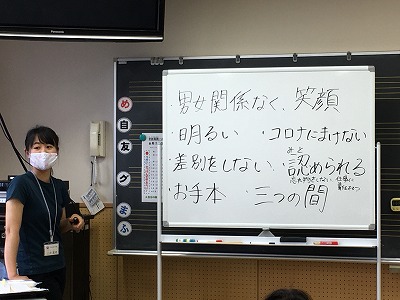 ・男女関係なく、笑顔
・明るい ・コロナにまけない
・差別をしない ・認められる
みと
・お手本 ・三つの間
め
自
友
ク
ま
ふ